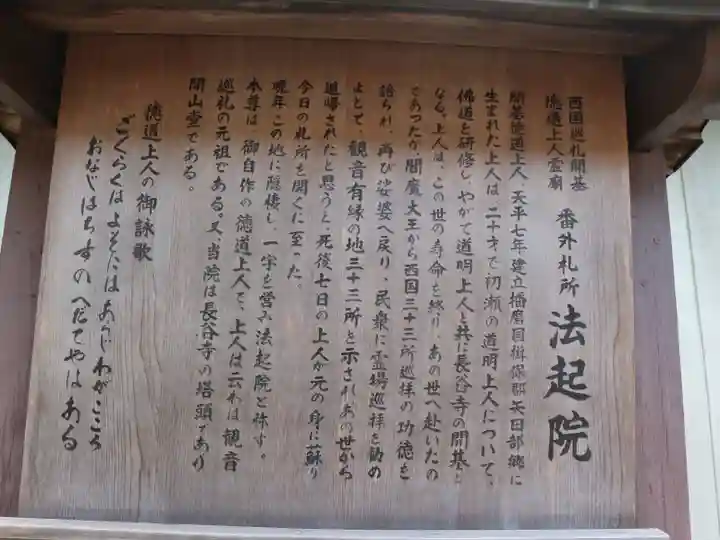 西国巡礼開基
徳道上人霊廟
番外札所
法起院
開基徳道上人、天平七年建立播磨国揖保郡矢田部郷に
生まれた上人は、二十才で初瀬の道明上人について、
佛道を研修し、やがて道明上人と共に長谷寺の開基と
なる。上人は、この世の寿命を終り、あの世へ赴いたの
であったが、閻魔大王から西国三十三所巡拝の功徳を
語られ、再び娑婆へ戻り、民衆に霊場巡拝を勧め
よとて、観音有縁の地三十三所を示されあの世から
追帰されたと思うと、死後七日の上人が元の身に蘇り
今日の札所を開くに至った。
晩年この地に隠棲し、一宇を営み法起院と称す。
本尊は、御自作の徳道上人で、上人は云わば観音
巡礼の元祖である。又、当院は長谷寺の塔頭であり
開山堂である。
徳道上人の御詠歌
ごくらくはよそにはあらじわがこころ
おなじはちすのへだてやはある